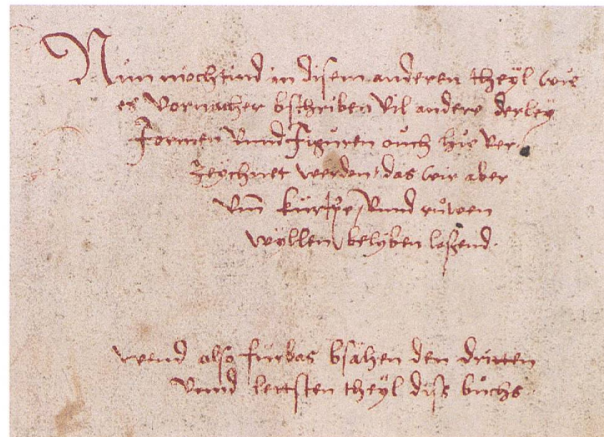 Nun mochtind in disem anderen theÿl wie
er vornacher bschriben vil andere derleÿ
Formen vnnd Figuren oůch hie ver
zeÿchnet werden, das wir aber
vm̄ kürtze, vnnd růwen
wÿllen, belÿben lassend.
wend also fürbas bsähen den dritten
vnnd lettsten theÿl diss bůchs